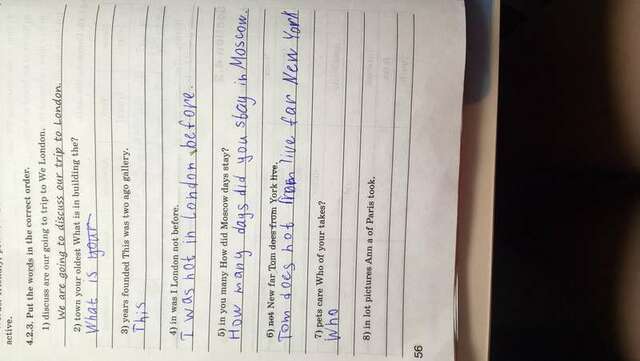 active.
4.2.3. Put the words in the correct order.
1) discuss are our going to trip to We London.
We are going to discuss our trip to London.
2) town your oldest What is in building the?
What is your
3) years founded This was two ago gallery.
This
4) in was I London not before.
I was not in London before.
5) in you many How did Moscow days stay?
How many days did you stay in Moscow.
6) not New far Tom does from York live.
Tom does not from live far New York
7) pets care Who of your takes?
Who
8) in lot pictures Ann a of Paris took.
56